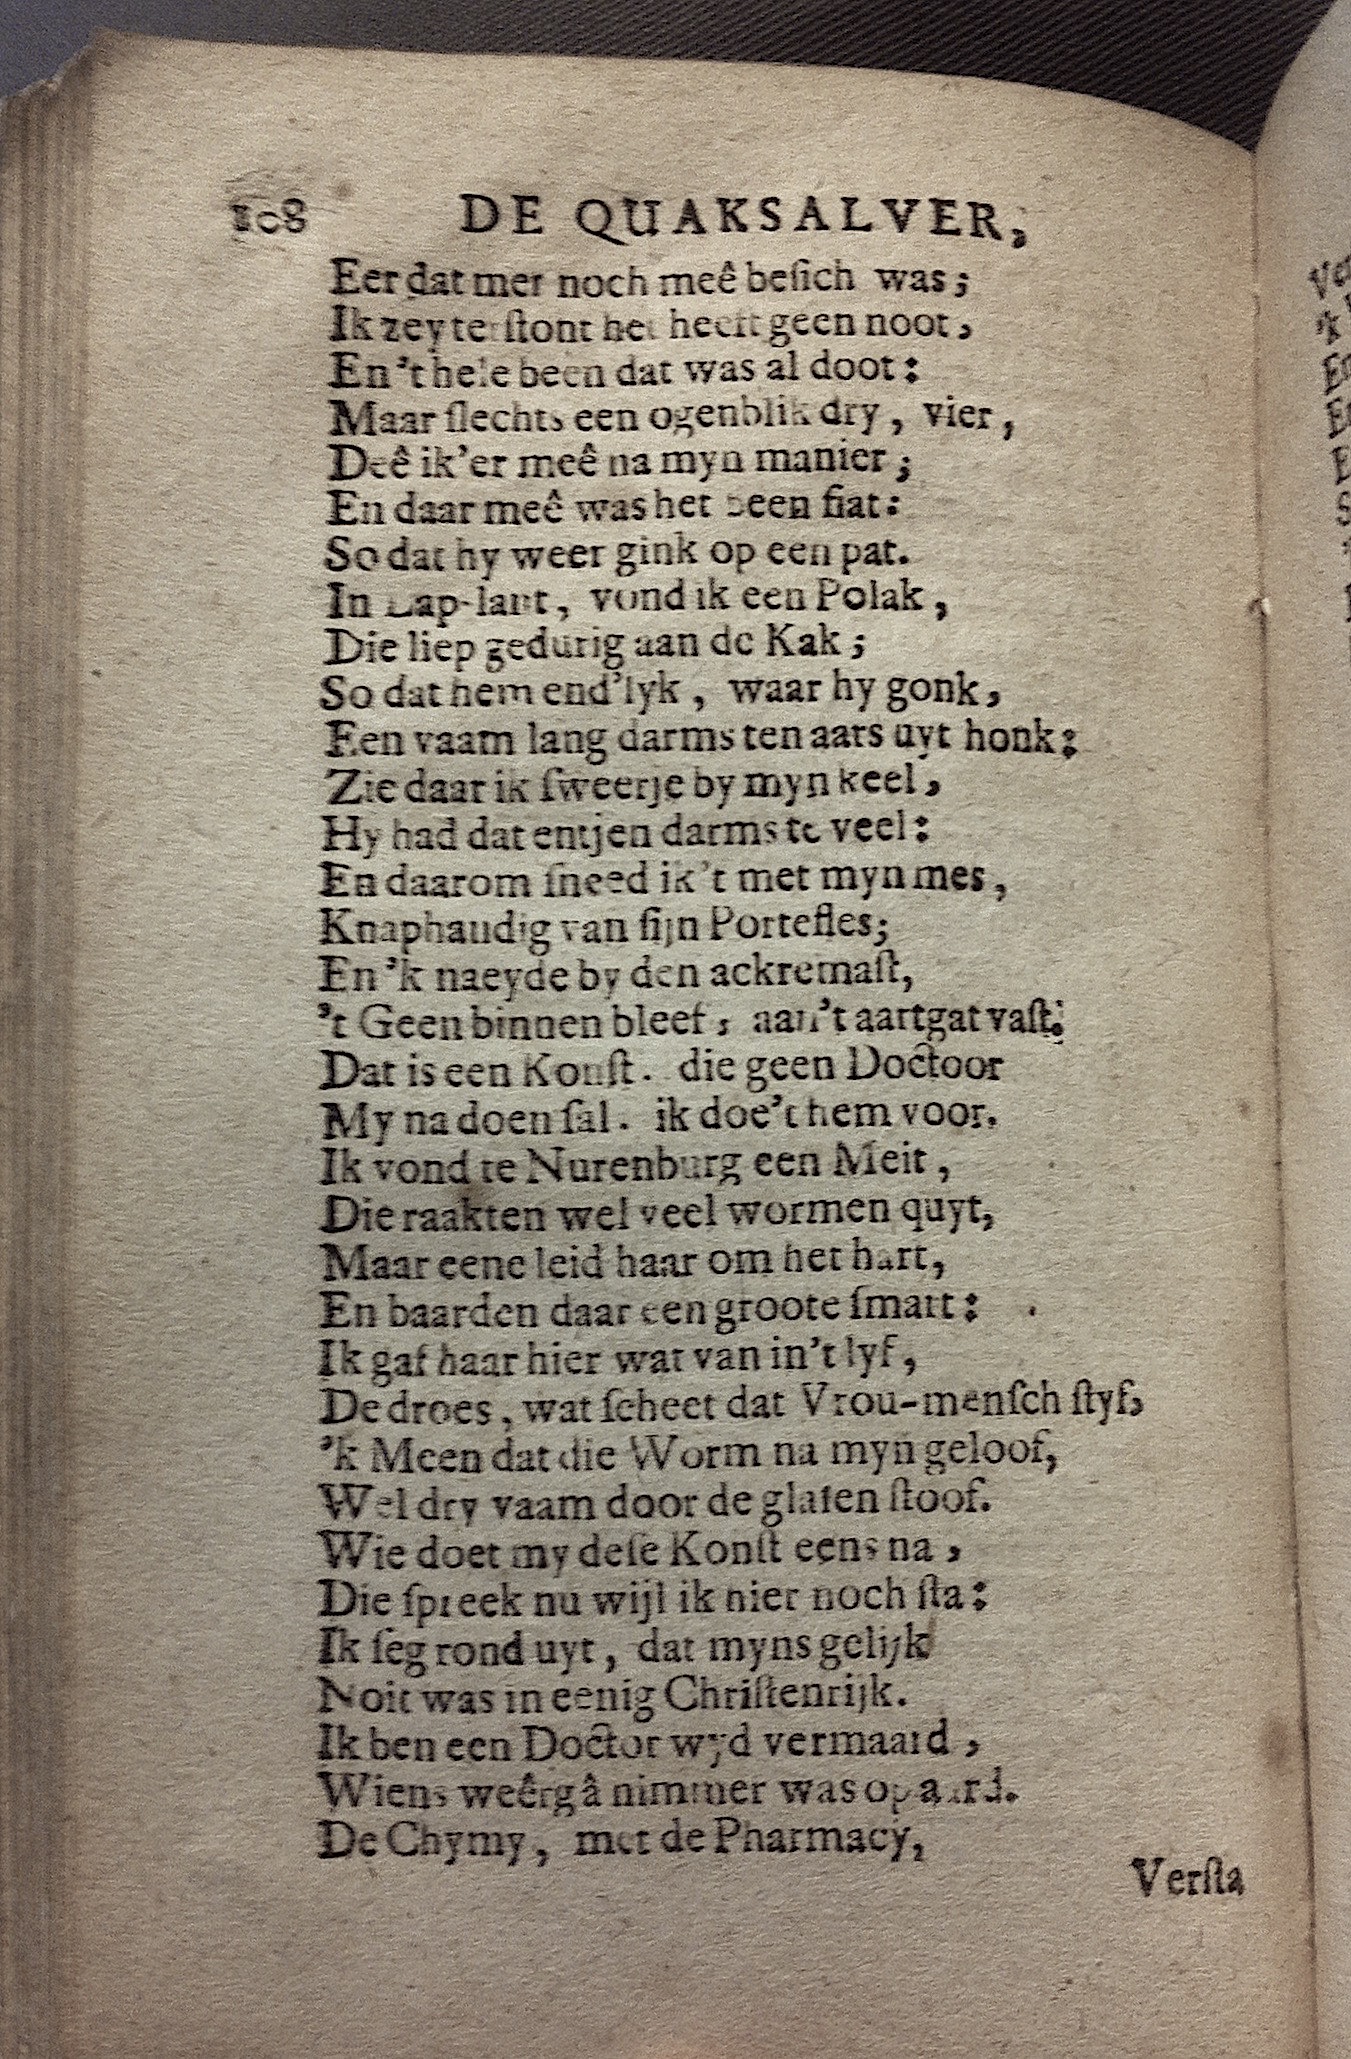 108 DE QUAKSALVER,
Eer dat mer noch meê beſich was;
Ik zey terſtont het heeft geen noot,
En 't hele been dat was al doot:
Maar ſlechts een ogenblik dry, vier,
Deê ik'er meê na myn manier;
En daar meê was het been fiat:
So dat hy weer gink op een pat.
In Lap-lant, vond ik een Polak,
Die liep gedurig aan de Kak;
So dat hem end'lyk, waar hy gonk,
Een vaam lang darms ten aars uyt honk:
Zie daar ik ſweerje by myn keel,
Hy had dat entjen darms te veel:
En daarom ſneed ik 't met myn mes,
Knaphaudig van ſijn Portefles;
En 'k naeyde by den ackremaſt,
't Geen binnen bleef, aan 't aartgat vaſt:
Dat is een Konſt. die geen Doctoor
My na doen ſal. ik doe't hem voor.
Ik vond te Nurenburg een Meit,
Die raakten wel veel wormen quyt,
Maar eene leid haar om het hart,
En baarden daar een groote ſmart:
Ik gaf haar hier wat van in't lyf,
De droes, wat ſcheet dat Vrou-menſch ſtyf,
'k Meen dat die Worm na myn geloof,
Wel dry vaam door de glaſen ſtoof.
Wie doet my deſe Konſt eens na,
Die ſpreek nu wijl ik hier noch ſta:
Ik ſeg rond uyt, dat myns gelijk
Noit was in eenig Chriſtenrijk.
Ik ben een Doctor wyd vermaard,
Wiens weêrgâ nimmer was op aard.
De Chymy, met de Pharmacy,
Verſta
'k